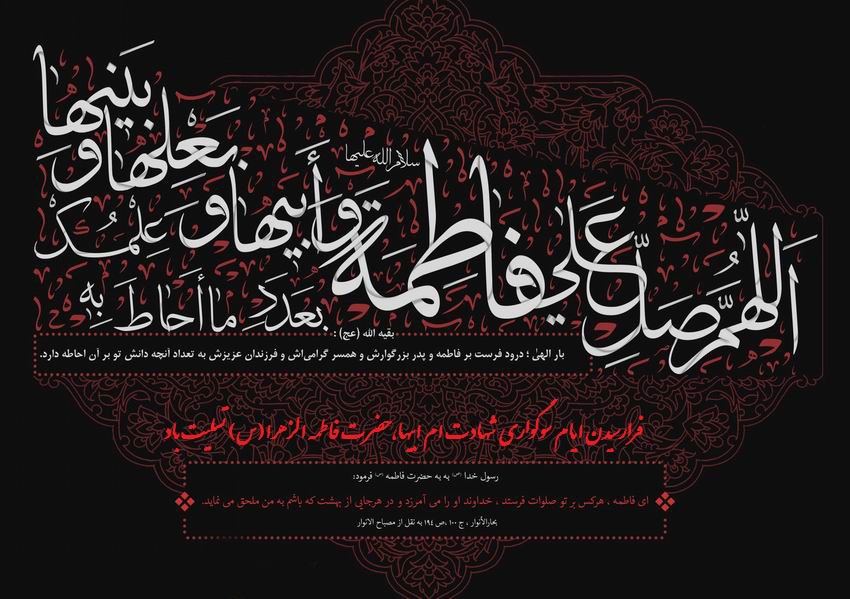 اَللّهُمَّ صَلِّ عَلي فاطِمَة وَ أَبيها وَ بَعلِها وَ بَنيها
سلام الله علیها
بِعَدَدِ ما أَحاطَ بِهِ عِلمُكَ
بقیه الله (عج) :
بار الهیٰ ؛ درود فرست بر فاطمه و پدر بزرگوارش و همسر گرامی‌اش و فرزندان عزیزش به تعداد آنچه دانش تو بر آن احاطه دارد.
فرارسیدن ایام سوگواری شهادت ام ابیها، حضرت فاطمه الزهرا (س) تسلیت باد
رسول خدا (ص) به به حضرت فاطمه (س) فرمود:
ای فاطمه ، هرکس بر تو صلوات فرستد ، خداوند او را می آمرزد و در هرجایی از بهشت که باشم به من ملحق می نماید.
بحارالأنوار ، ج ۱۰۰ ،ص ۱۹۴ به نقل از مصباح الانوار